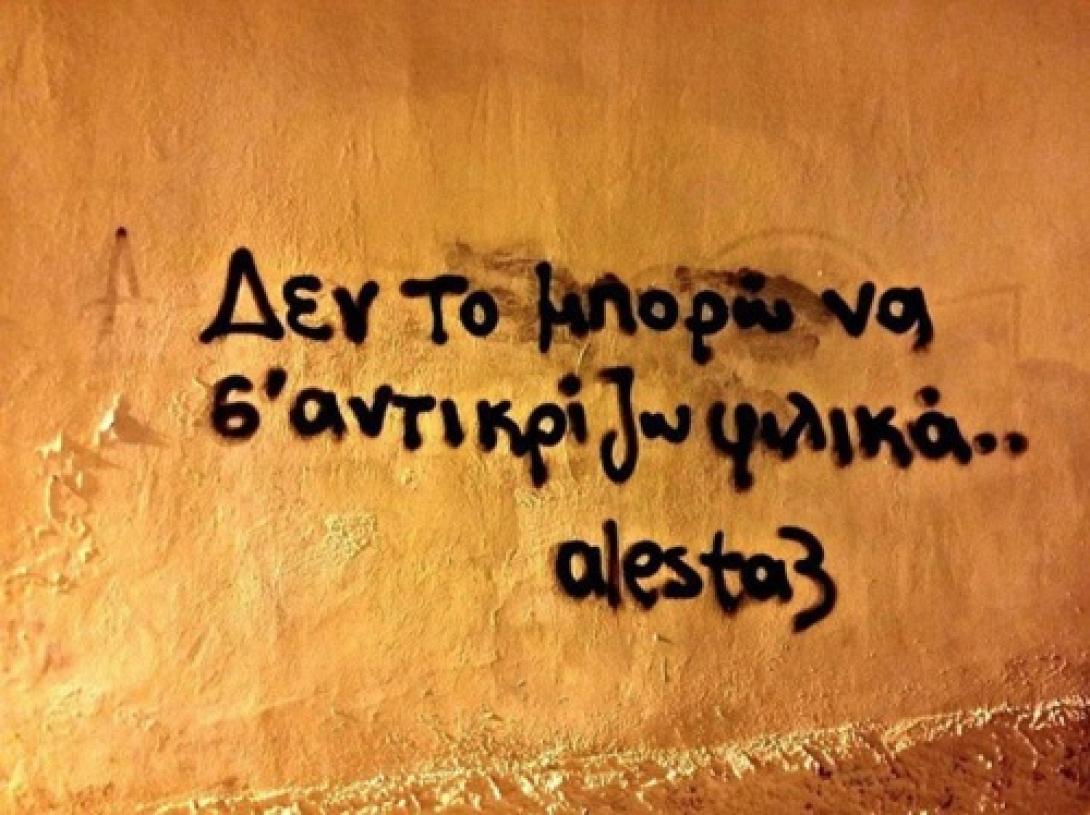 Δεν το μπορώ να
σ'αντικρίζω φιλικά..
alesta3